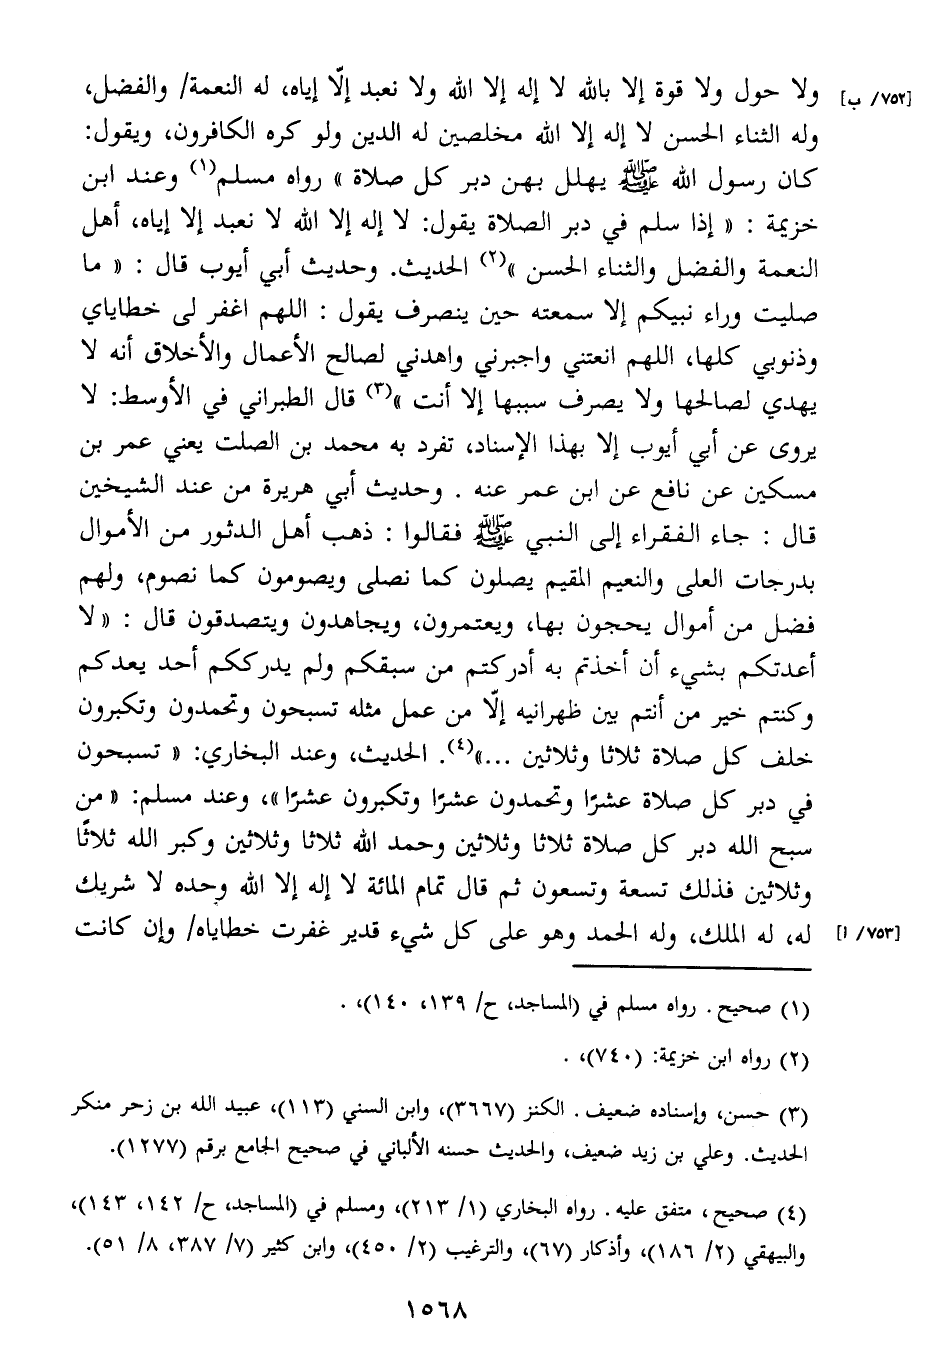 ولا حول ولا قوة إلا بالله لا إله إلا الله ولا نعبد إلّا إياه، له النعمة/ والفضل، [٧٥٢/ ب]
وله الثناء الحسن لا إله إلا الله مخلصين له الدين ولو كره الكافرون، ويقول:
كان رسول الله ﷺ يهلل بهن دبر كل صلاة » رواه مسلم(١) وعند ابن
خزيمة : « إذا سلم في دبر الصلاة يقول: لا إله إلا الله لا نعبد إلا إياه، أهل
النعمة والفضل والثناء الحسن »(٢) الحديث. وحديث أبي أيوب قال : « ما
صليت وراء نبيكم إلا سمعته حين ينصرف يقول : اللهم اغفر لى خطاياي
وذنوبي كلها، اللهم انعتني واجبرني واهدني لصالح الأعمال والأخلاق أنه لا
يهدي لصالحها ولا يصرف سببها إلا أنت »(٣) قال الطبراني في الأوسط: لا
يروى عن أبي أيوب إلا بهذا الإسناد، تفرد به محمد بن الصلت يعني عمر بن
مسكين عن نافع عن ابن عمر عنه . وحديث أبي هريرة من عند الشيخين
قال : جاء الفقراء إلى النبي ﷺ فقالوا : ذهب أهل الدثور من الأموال
بدرجات العلى والنعيم المقيم يصلون كما نصلى ويصومون كما نصوم، ولهم
فضل من أموال يحجون بها، ويعتمرون، ويجاهدون ويتصدقون قال : « لا
أعدتكم بشيء أن أخذتم به أدركتم من سبقكم ولم يدرككم أحد يعدكم
وكنتم خير من أنتم بين ظهرانيه إلّا من عمل مثله تسبحون وتحمدون وتكبرون
خلف كل صلاة ثلاثا وثلاثين ...»(٤). الحديث، وعند البخاري: « تسبحون
في دبر كل صلاة عشرًا وتحمدون عشرًا وتكبرون عشرًا»، وعند مسلم: «من
سبح الله دبر كل صلاة ثلاثا وثلاثين وحمد الله ثلاثا وثلاثين وكبر الله ثلاثًا
وثلاثين فذلك تسعة وتسعون ثم قال تمام المائة لا إله إلا الله وحده لا شريك
له، له الملك، وله الحمد وهو على كل شيء قدير غفرت خطاياه/ وإن كانت [٧٥٣/ أ]
(١) صحيح. رواه مسلم في (المساجد، ح/ ١٣٩، ١٤٠)، .
(٢) رواه ابن خزيمة: (٧٤٠)، .
(٣) حسن، وإسناده ضعيف. الكنز (٣٦٦٧)، وابن السني (١١٣)، عبيد الله بن زحر منكر
الحديث. وعلي بن زيد ضعيف، والحديث حسنه الألباني في صحيح الجامع برقم (١٢٧٧).
(٤) صحيح، متفق عليه. رواه البخاري (١/ ٢١٣)، ومسلم في (المساجد، ح/ ١٤٢، ١٤٣)،
والبيهقي (٢/ ١٨٦)، وأذكار (٦٧)، والترغيب (٢/ ٤٥٠)، وابن كثير (٧/ ٣٨٧، ٨/ ٥١).
١٥٦٨